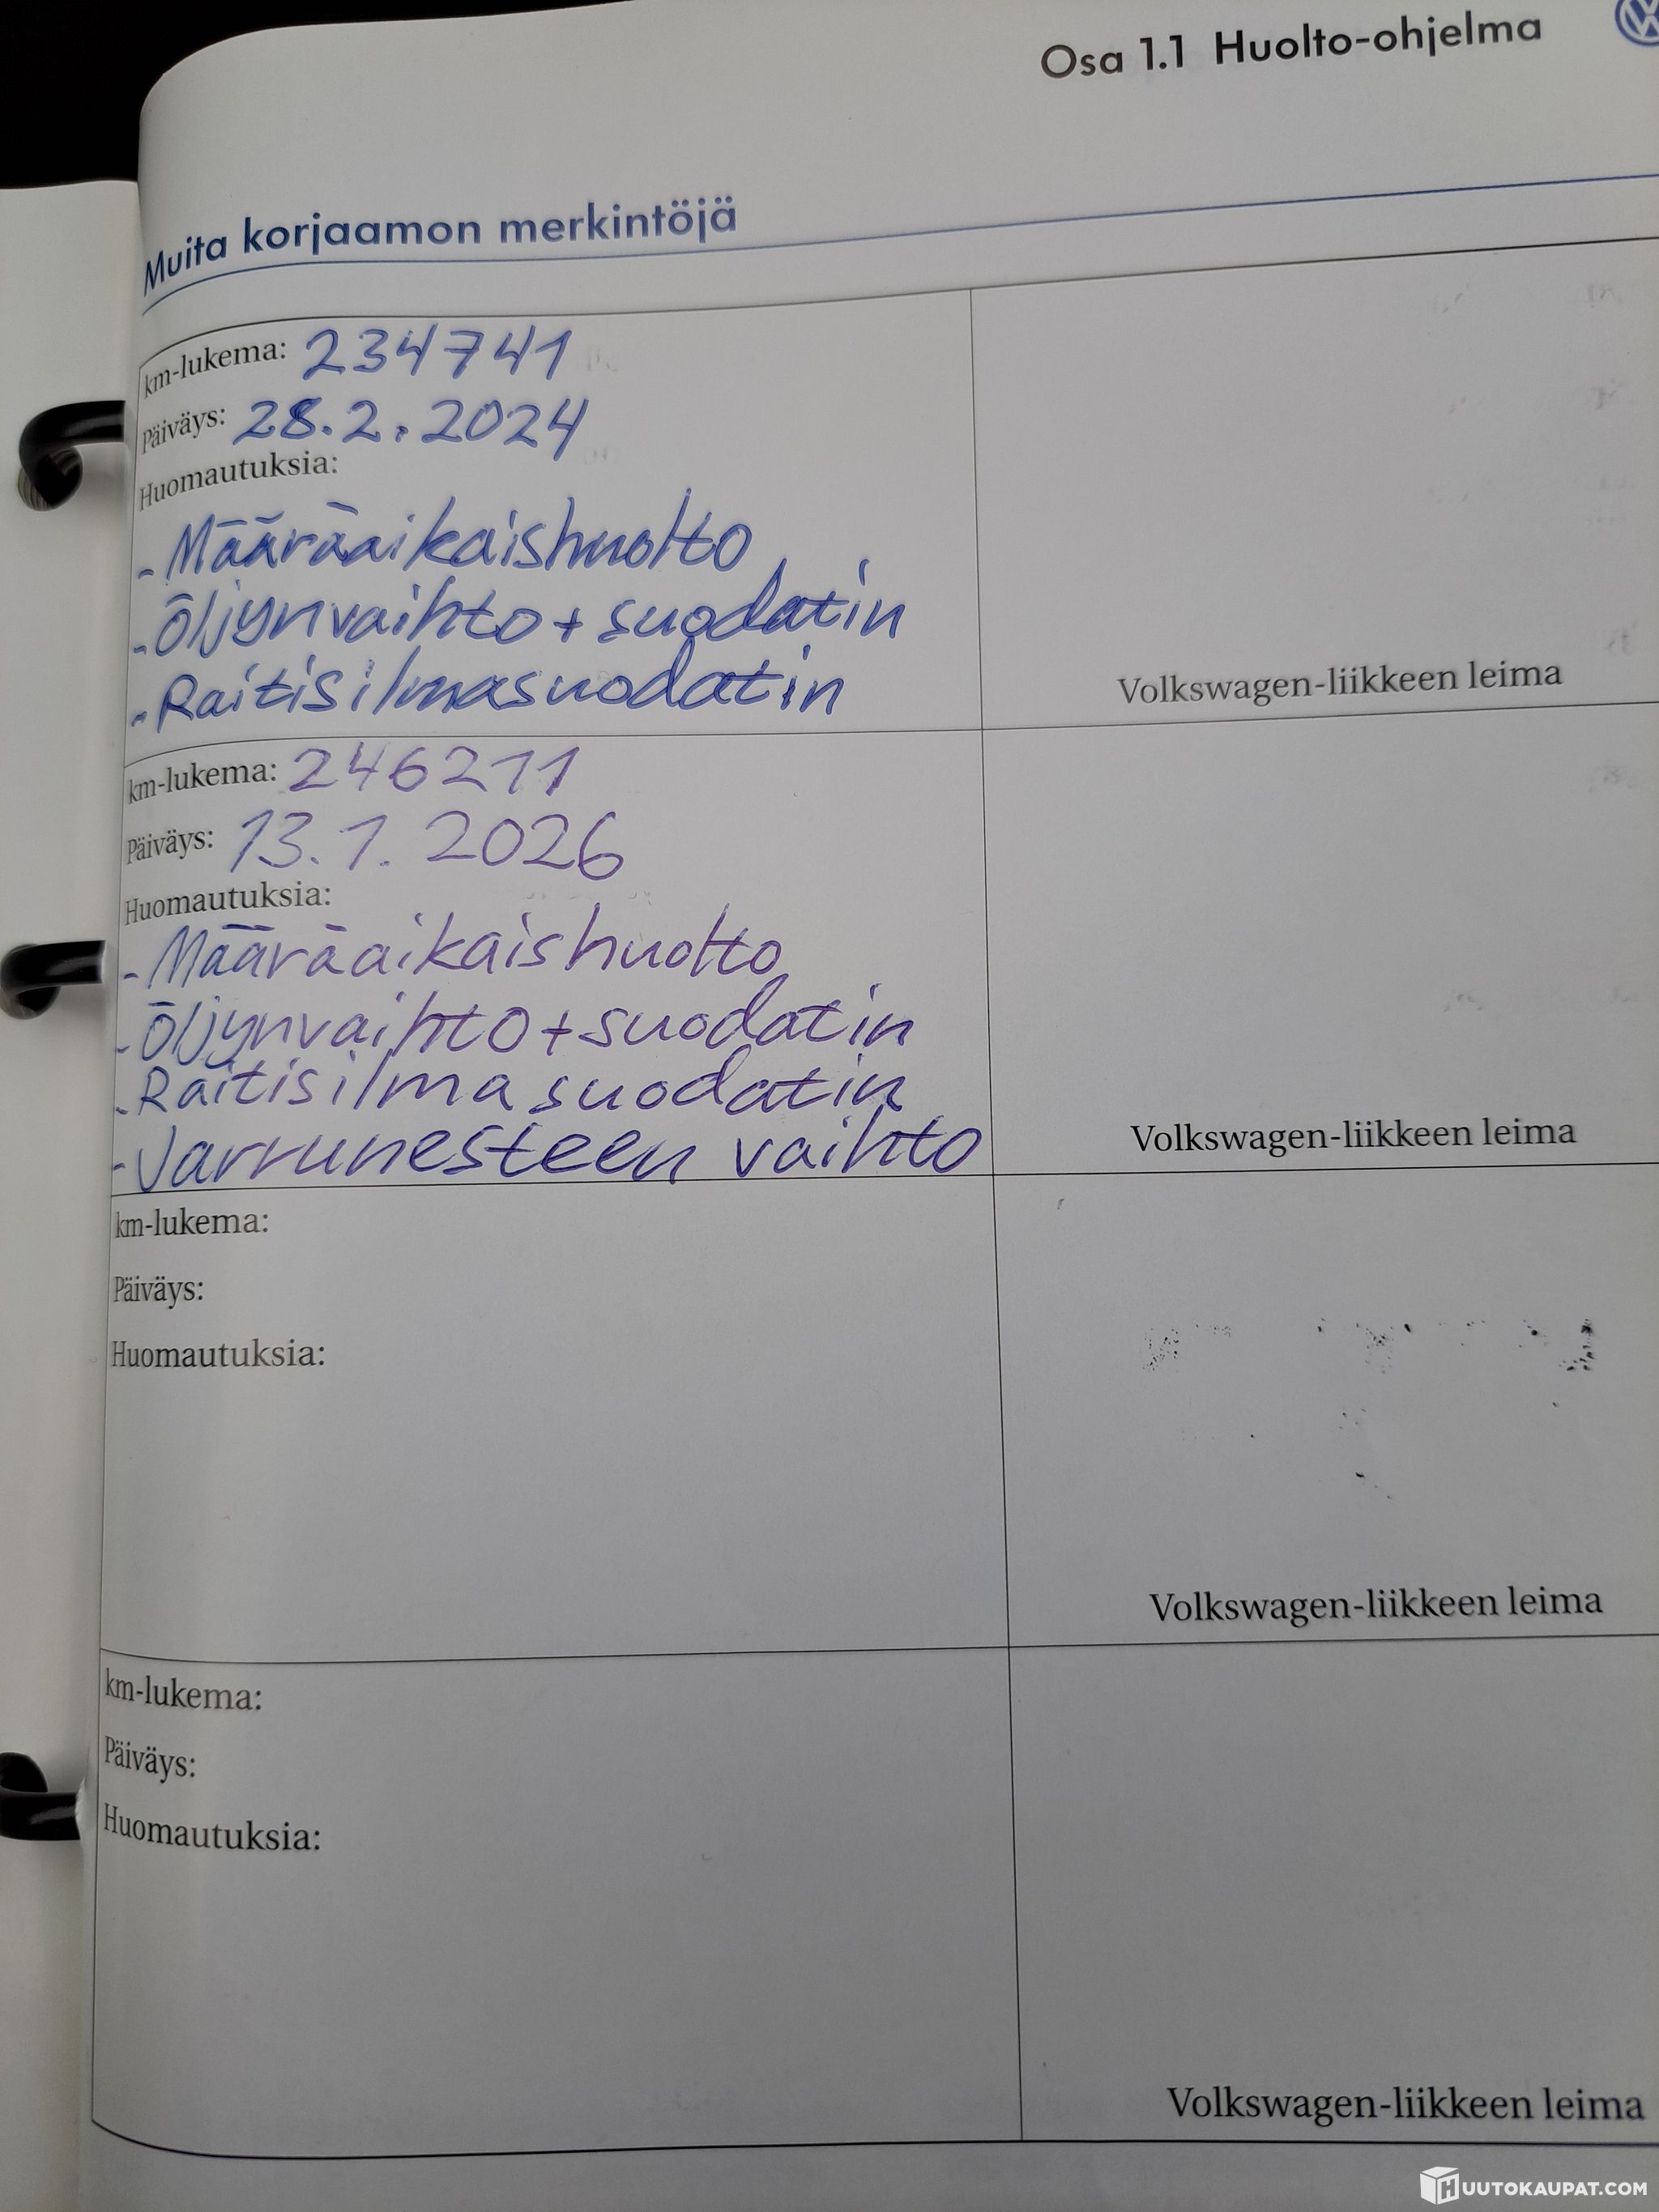 Osa 1.1 Huolto-ohjelma
Muita korjaamon merkintöjä
km-lukema: 234741
Päiväys: 28.2.2024
Huomautuksia:
- Määräaikaishuolto
- Öljynvaihto + suodatin
- Raitisilmasuodatin
Volkswagen-liikkeen leima
km-lukema: 246211
Päiväys: 13.1.2026
Huomautuksia:
- Määräaikaishuolto
- Öljynvaihto + suodatin
- Raitisilmasuodatin
- Jarrunesteen vaihto
Volkswagen-liikkeen leima
km-lukema:
Päiväys:
Huomautuksia:
Volkswagen-liikkeen leima
km-lukema:
Päiväys:
Huomautuksia:
Volkswagen-liikkeen leima
HUUTOKAUPAT.COM